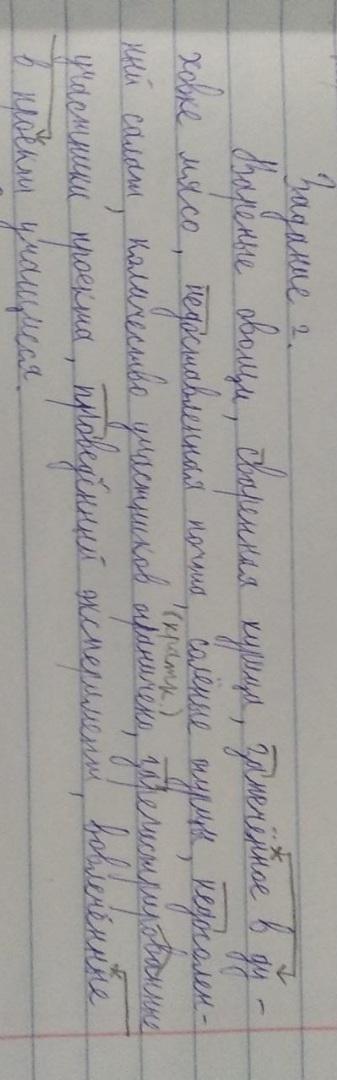 Задание 2.
Вареные овощи, сваренная курица, запечённое в ду-
ховке мясо, недоставленная почта, солёные огурцы, недосолен-
ный салат, количество участников ограничено, (кратк.) зарегистрированные
участники проекта, проведённый эксперимент, вовлечённые
в проект учащиеся.